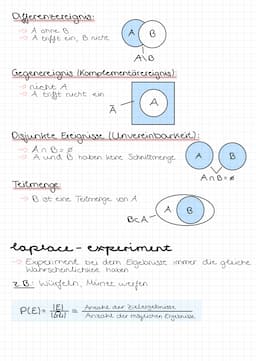 Differenzereignis:
→ A ohne B
→ A trifft ein, B nicht
A B
A\B
Gegenereignis (Komplementärereignis):
→ nicht A
→ A trifft nicht ein
A
Ā
Disjunkte Ereignisse (Unvereinbarkeit):
→ A∩B=ø
→ A und B haben keine Schnittmenge
A B
A∩B=ø
Teilmenge
→ B ist eine Teilmenge von A
A B
B⊂A
Laplace-experiment
→ Experiment bei dem Ergebnisse immer die gleiche
Wahrscheinlichkeit haben
z.B.: Würfeln, Münze werfen
P(E)= |E| / |Ω| = Anzahl der Zielergebnisse / Anzahl der möglichen Ergebnisse